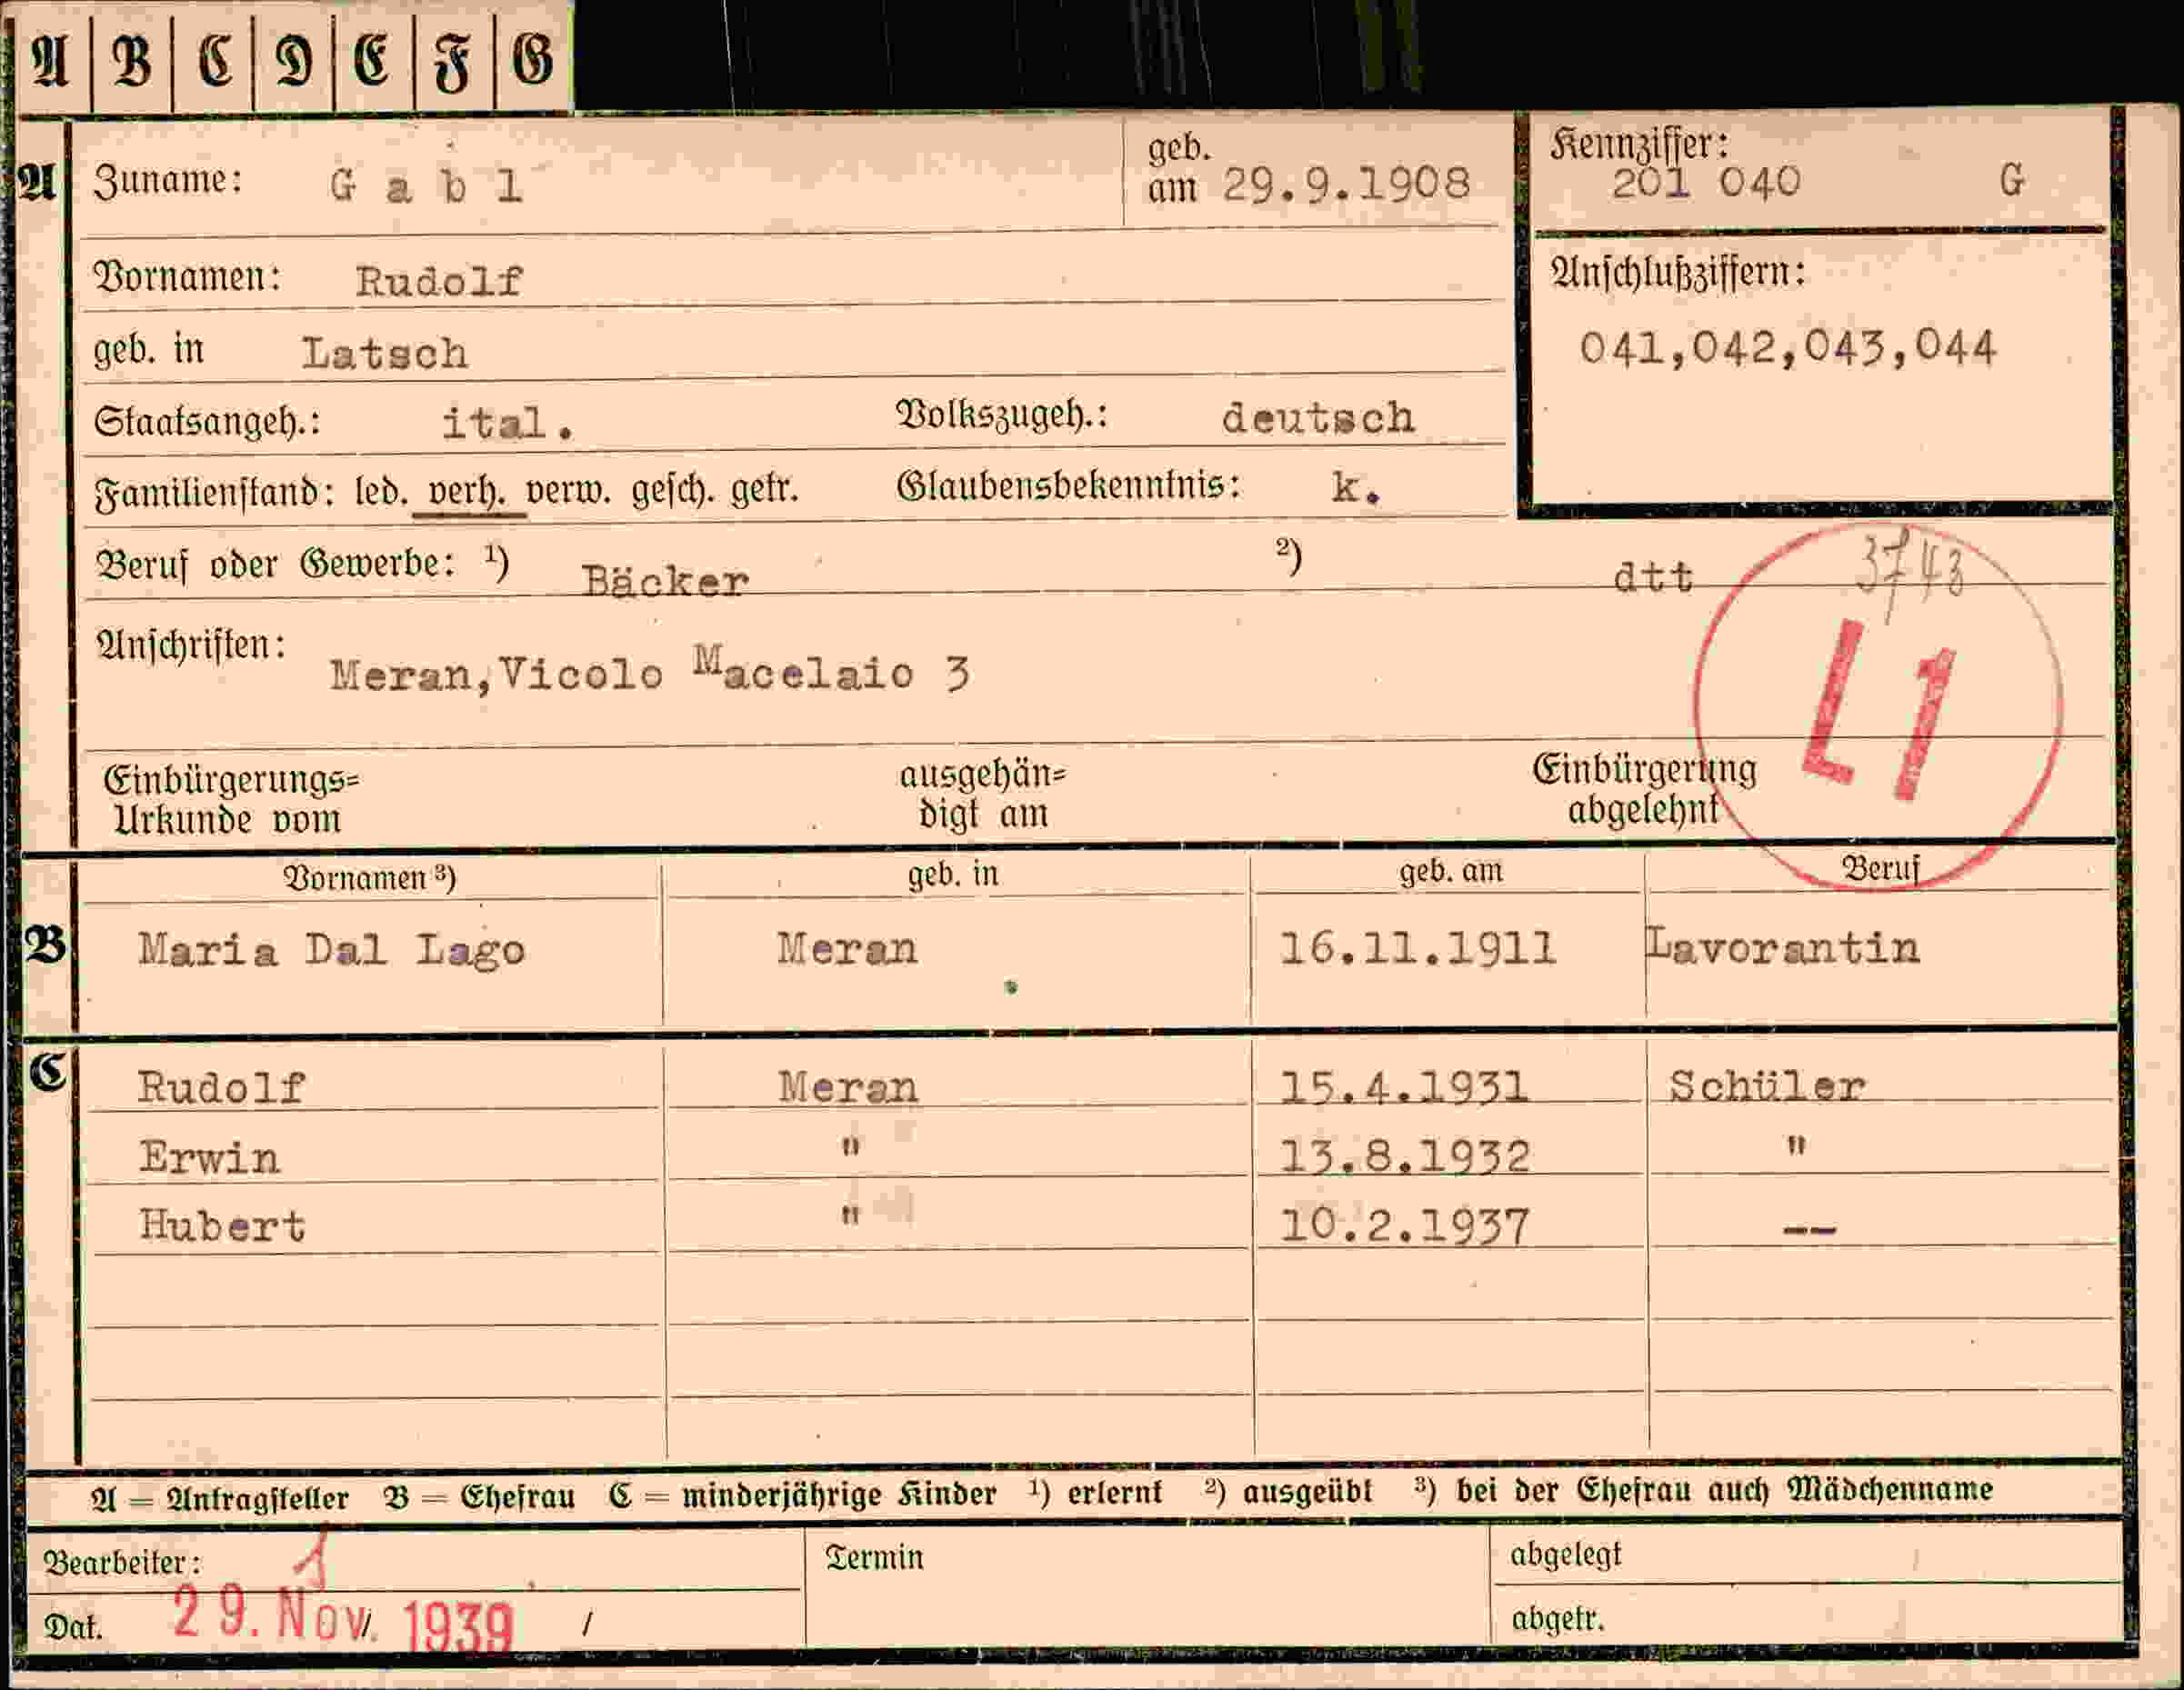 A B C D E F G
A Zuname: G a b l geb. am 29.9.1908 Kennziffer: 201 040 G
Vornamen: Rudolf Anschlußziffern:
geb. in Latsch 041,042,043,044
Staatsangeh.: ital. Volkszugeh.: deutsch
Familienstand: led. verh. verw. gesch. getr. Glaubensbekenntnis: k.
Beruf oder Gewerbe: ¹) Bäcker ²) dtt 3743
Anschriften: Meran,Vicolo Macelaio 3
L1
Einbürgerungs= ausgehän= Einbürgerung
Urkunde vom digt am abgelehnt
Vornamen ³) geb. in geb. am Beruf
B Maria Dal Lago Meran 16.11.1911 Lavorantin
C Rudolf Meran 15.4.1931 Schüler
Erwin " 13.8.1932 "
Hubert " 10.2.1937 --
A = Antragsteller B = Ehefrau C = minderjährige Kinder ¹) erlernt ²) ausgeübt ³) bei der Ehefrau auch Mädchenname
Bearbeiter: 1 Termin abgelegt
Dat. 29. Nov. 1939 / abgetr.